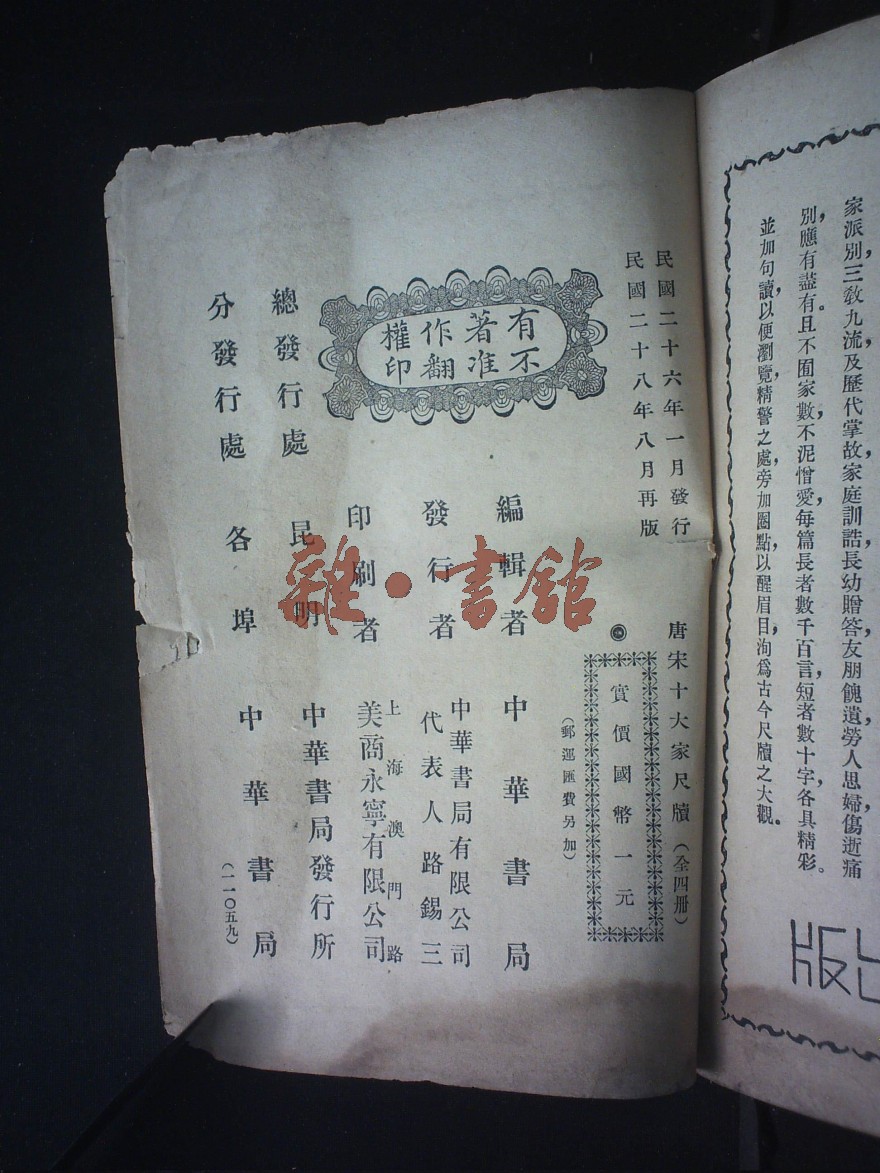 家派別三教九流及歷代掌故家庭訓誥長幼贈答友朋餽遺勞人思婦傷逝痛
別，應有盡有。且不囿家數，不泥憎愛，每篇長者數千百言，短者數十字，各具精彩。
並加句讀，以便瀏覽，精警之處，旁加圈點，以醒眉目，洵爲古今尺牘之大觀。
版
民國二十六年一月發行
民國二十八年八月再版
唐宋十大家尺牘（全四冊）
實價國幣一元
（郵運匯費另加）
有著作權
不准翻印
編輯者 中華書局
發行者 中華書局有限公司
代表人路錫三
印刷者 上海澳門路
美商永寧有限公司
總發行處 昆明 中華書局發行所
分發行處 各埠 中華書局
（一一〇五九）
雜·書館